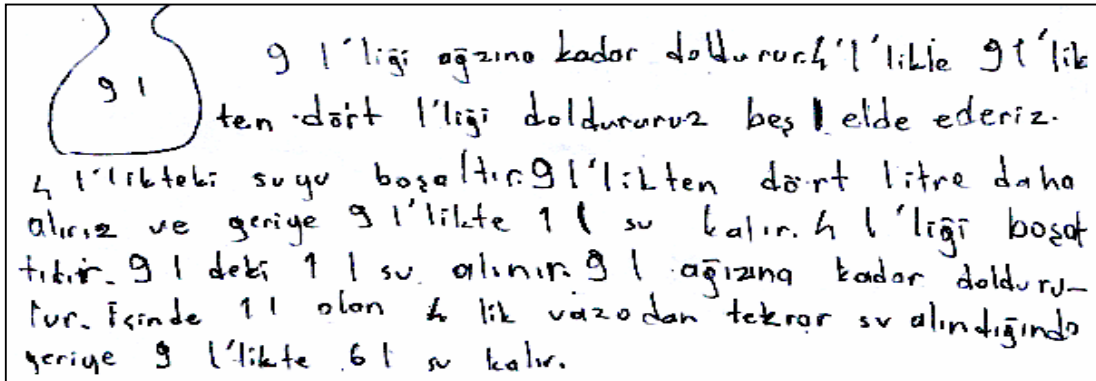 9 l
9 l'liği ağzına kadar doldurur. 4 l'likle 9 l'lik
ten dört l'liği doldururuz beş l elde ederiz.
4 l'likteki suyu boşaltır. 9 l'likten dört litre daha
alırız ve geriye 9 l'likte 1 l su kalır. 4 l'liği boşat
tılır. 9 l deki 1 l su alınır. 9 l ağızına kadar dolduru-
lur. İçinde 1 l olan 4 lik vazodan tekrar su alındığında
geriye 9 l'likte 6 l su kalır.